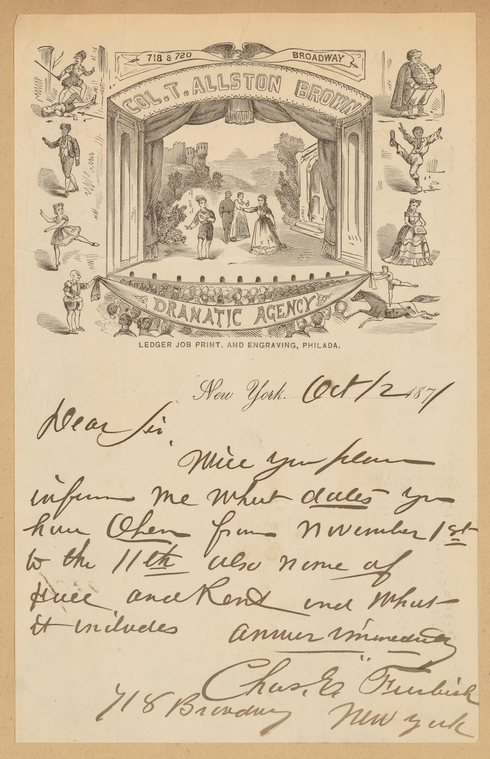 718 & 720 BROADWAY
COL. T. ALLSTON BROWN
DRAMATIC AGENCY
LEDGER JOB PRINT. AND ENGRAVING, PHILADA.
New York. Oct 12 1871
Dear Sir
Will you please
inform me what dates you
have Open from November 1st
to the 11th also name of
Hall and Rent and what
it includes answer immediately
Chas. E. Furbish
718 Broadway New York